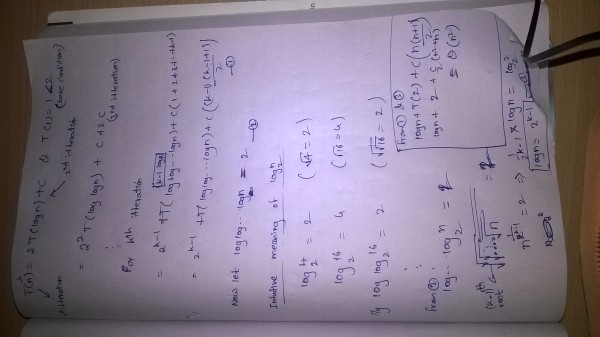 T(n) = 2T(logn)+C & T(1)=1 <2
1st iteration 2nd iteration (base condition)
= 2² T(log logn) + C + 2C
(3rd iteration)
For kth iteration
= 2^(k-1) + T(loglog---logn) + C(1+2+3+---+k-1)
= 2^(k-1) + T(loglog---logn) + C((k-1)(k-1+1)/2) —①
Now let loglog---logn = 2 —②
Intuitive meaning of log₂n
log₂4 = 2 (√4 = 2)
log₂16 = 4 (√16 = 4)
lly log log₂16 = 2 (√√16 = 2)
from ②,
log---log₂n = 2
(k-1)th root
n^(1/2^(k-1)) = 2 => 1/2^(k-1) × logn = log₂2
logn = 2^(k-1) —③
from ① & ③
logn + T(2) + C(n(n+1)/2)
logn + 2 + C/2(n²+n)
= Θ(n²)